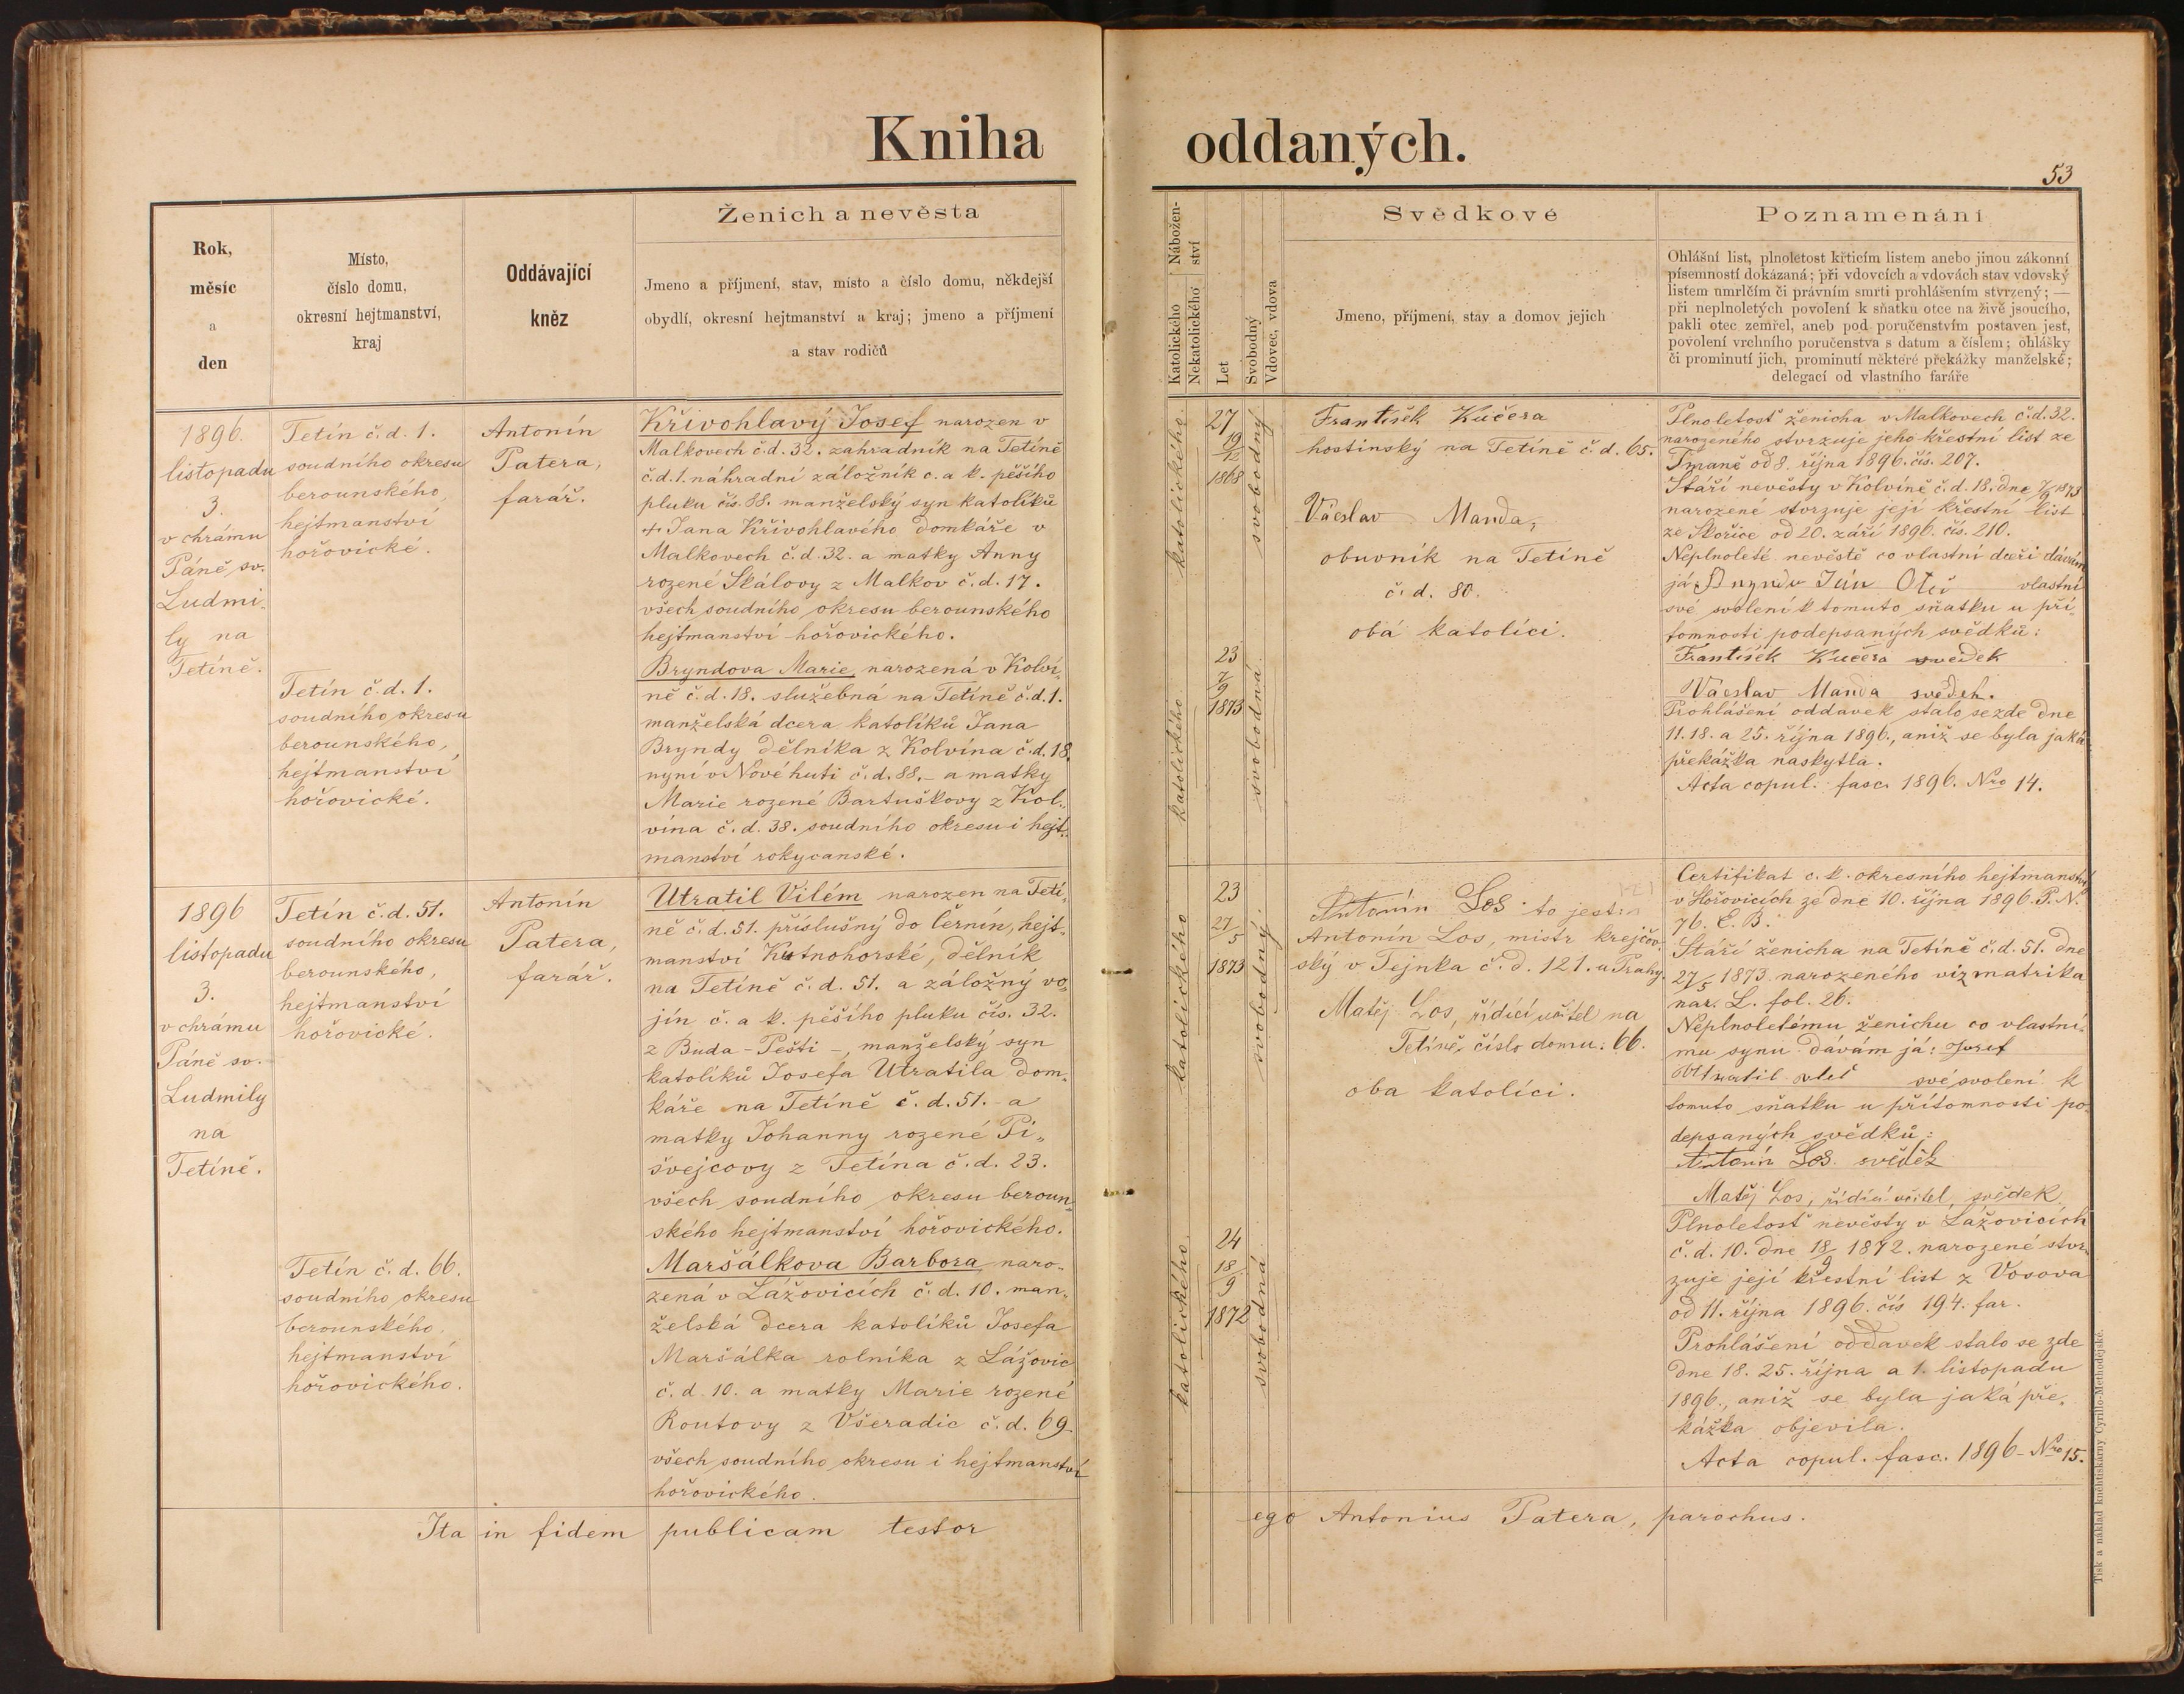 Kniha oddaných.
53
Rok,
měsíc
a
den
Místo,
číslo domu,
okresní hejtmanství,
kraj
Oddávající
kněz
Ženich a nevěsta
Jmeno a příjmení, stav, místo a číslo domu, někdejší
obydlí, okresní hejtmanství a kraj; jmeno a příjmení
a stav rodičů
Nábožen-
ství
Katolického
Nekatolického
Let
Svobodný
Vdovec, vdova
Svědkové
Jmeno, příjmení, stav a domov jejich
Poznamenání
Ohlášní list, plnoletost křticím listem anebo jinou zákonní
písemností dokázaná; při vdovcích a vdovách stav vdovský
listem umrlčím či právním smrti prohlášením stvrzený; —
při neplnoletých povolení k sňatku otce na živě jsoucího,
pakli otec zemřel, aneb pod poručenstvím postaven jest,
povolení vrchního poručenstva s datum a číslem; ohlášky
či prominutí jich, prominutí některé překážky manželské;
delegací od vlastního faráře
1896.
listopadu
3.
v chrámu
Páně sv.
Ludmi-
ly na
Tetíně.
Tetín č.d. 1.
soudního okresu
berounského,
hejtmanství
hořovické.
Tetín č.d. 1.
soudního okresu
berounského,
hejtmanství
hořovické.
Antonín
Patera,
farář.
Křivohlavý Josef narozen v
Malkovech č.d. 32. zahradník na Tetíně
č.d. 1. náhradní záložník c. a k. pěšího
pluku čís. 88. manželský syn katolíků
+ Jana Křivohlavého domkáře v
Malkovech č.d. 32. a matky Anny
rozené Skálovy z Malkov č.d. 17.
všech soudního okresu berounského
hejtmanství hořovického.
Bryndova Marie, narozená v Kolví-
ně č.d. 18. služebná na Tetíně č.d. 1.
manželská dcera katolíků Jana
Bryndy dělníka z Kolvína č.d. 18.
nyní v Nové huti č.d. 88. - a matky
Marie rozené Bartuškovy z Kol-
vína č.d. 38. soudního okresu i hejt-
manství rokycanské.
katolického
27
19/12
1868
svobodný
katolického
23
7/9
1873
svobodná
František Kučera
hostinský na Tetíně č.d. 65.
Václav Manda,
obuvník na Tetíně
č.d. 80.
obá katolíci.
Plnoletosť ženicha v Malkovech č.d. 32.
narozeného stvrzuje jeho křestní list ze
Tmaně od 8. října 1896. čís. 207.
Stáří nevěsty v Kolvíně č.d. 18. dne 7/9 1873
narozené stvrzuje její křestní list
ze Skořice od 20. září 1896. čís. 210.
Neplnoleté nevěstě co vlastní dceři dávám
já: Jún Otec vlastní
své svolení k tomuto sňatku u pří-
tomnosti podepsaných svědků:
František Kučera svědek
Václav Manda svědek.
Prohlášení oddavek stalo se zde dne
11. 18. a 25. října 1896., aniž se byla jaká
překážka naskytla.
Acta copul. fasc. 1896. Nro 14.
1896
listopadu
3.
v chrámu
Páně sv.
Ludmily
na
Tetíně.
Tetín č.d. 51.
soudního okresu
berounského,
hejtmanství
hořovické.
Tetín č.d. 66.
soudního okresu
berounského.
hejtmanství
hořovického.
Antonín
Patera,
farář.
Utratil Vilém narozen na Tetí-
ně č.d. 51. příslušný do Černín, hejt-
manství Kutnohorské, dělník
na Tetíně č.d. 51. a záložný vo-
jín c. a k. pěšího pluku čís. 32.
z Buda-Pešti -, manželský syn
katolíků Josefa Utratila dom-
káře na Tetíně č.d. 51. - a
matky Johanny rozené Pi-
švejcovy z Tetína č.d. 23.
všech soudního okresu beroun-
ského hejtmanství hořovického.
Maršálkova Barbora naro-
zená v Lážovicích č.d. 10. man-
želská dcera katolíků Josefa
Maršálka rolníka z Lážovic
č.d. 10. a matky Marie rozené
Routovy z Všeradic č.d. 69.
všech soudního okresu i hejtmanství
hořovického.
katolického
23
27/5
1873
svobodný
katolického
24
18/9
1872
svobodná
Antonín Los to jest:
Antonín Los, mistr krejčov-
ský v Tejnka č.d. 121. u Prahy.
Matěj Los, řídící učitel na
Tetíně, číslo domu: 66.
oba katolíci.
Certifikat c.k. okresního hejtmanství
v Hořovicích ze dne 10. října 1896. P.N.
76. E.B.
Stáří ženicha na Tetíně č.d. 51. dne
27/5 1873. narozeného viz matrika
nar. L. fol. 26.
Neplnoletému ženichu co vlastní-
mu synu dávám já: Josef
Utratil otec své svolení k
tomuto sňatku u přítomnosti po-
depsaných svědků:
Antonín Los. svědek
Matěj Los, řídící učitel, svědek
Plnoletosť nevěsty v Lážovicích
č.d. 10. dne 18/9 1872. narozené stvr-
zuje její křestní list z Vosova
od 11. října 1896. čís 194. far.
Prohlášení oddavek stalo se zde
dne 18. 25. října a 1. listopadu
1896., aniž se byla jaká pře-
kážka objevila.
Acta copul. fasc. 1896 - Nro 15.
Ita in fidem publicam testor ego Antonius Patera, parochus.
Tisk a náklad knihtiskárny Cyrillo-Methodějské.